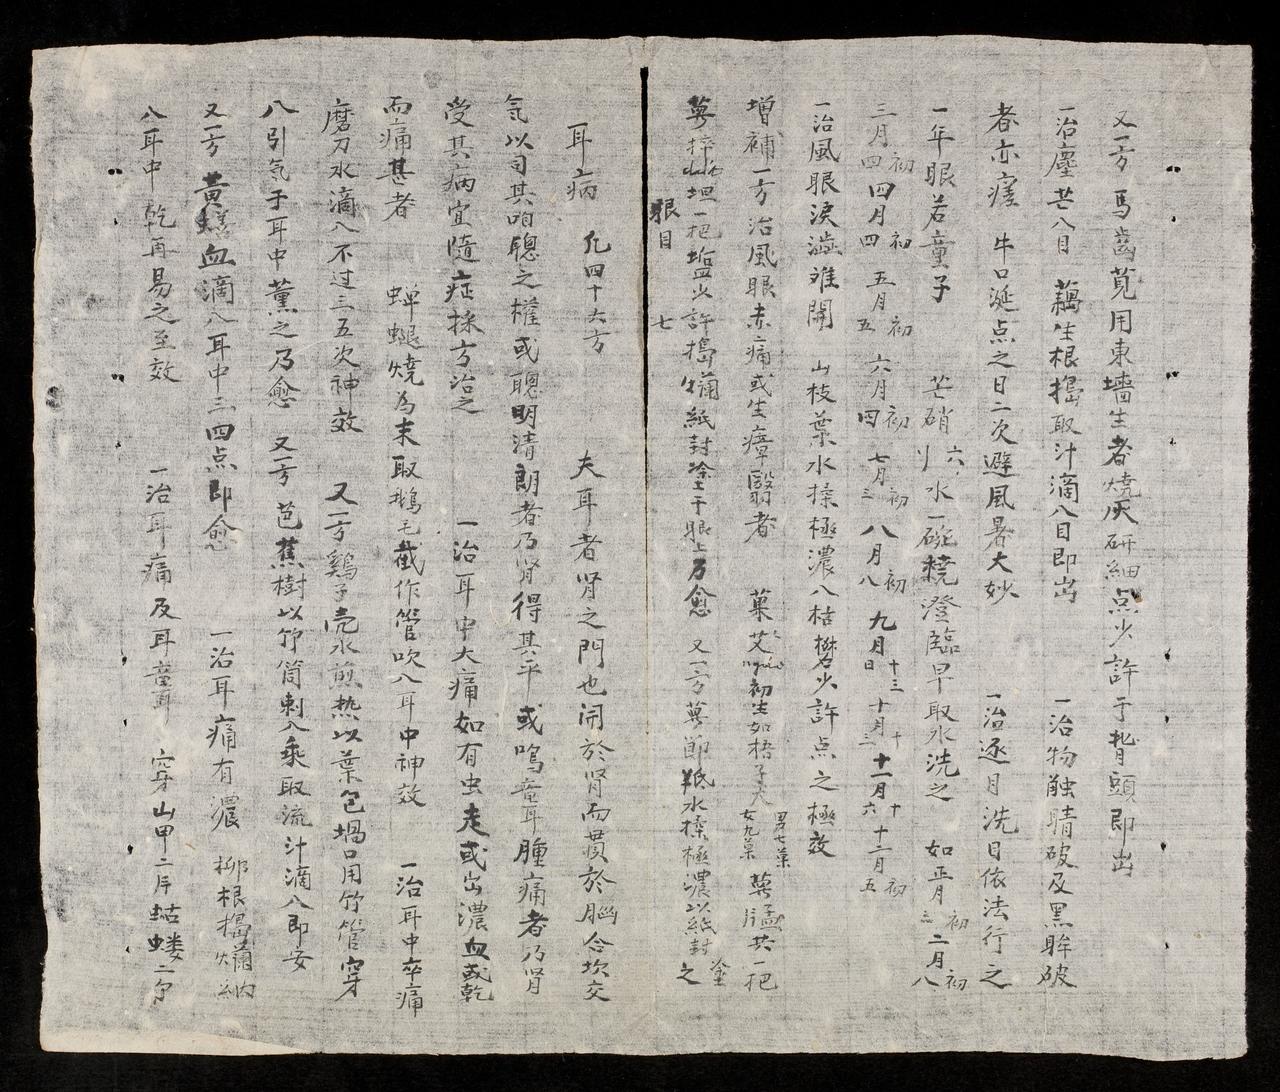 又一方 馬齒莧用東墻生者燒灰研細点少許于眦頭即出
一治塵芒入目 藕生根搗取汁滴入目即出 一治物触睛破及黑眸破
者亦瘥 牛口涎点之日二次避風暑大妙 一治逐月洗目依法行之
一年眼若童子 芒硝六刂水一碗搅澄臨早取水洗之 如正月初三二月初八
三月初四四月初四 五月初五 六月初四七月初三八月初八 九月十三日十月十三十一月十六十二月初五
一治風眼淚澁难開 山枝葉水揉極濃入枯礬少許点之極效
增補一方治風眼赤痛或生瘴翳者 菓艾初生如梧子大男七菓女九菓 共一把
一把塩少許搗爛紙封塗于眼上乃愈 又一方 水揉極濃以紙封塗之
眼目 七
耳病 凡四十六方 夫耳者肾之門也開於肾而貫於腦念坎交
氣以司其咱聰之權或聰明清朗者乃肾得其平或鳴聾腫痛者乃肾
受其病宜隨症採方治之 一治耳中大痛如有虫走或出濃血或乾
而痛甚者 蝉蜕燒為末取鵝毛截作管吹入耳中神效 一治耳中卒痛
磨刀水滴入不过三五次神效 又一方鷄子壳水煎热以葉包堝口用竹管穿
入引気于耳中薰之乃愈 又一方芭蕉樹以竹筒刺入乘取流汁滴入即安
又一方 黄鱔血滴入耳中三四点即愈 一治耳痛有濃 柳根搗爛納
入耳中乾再易之至效 一治耳痛及耳聾 穿山甲二片蛄蝼二分